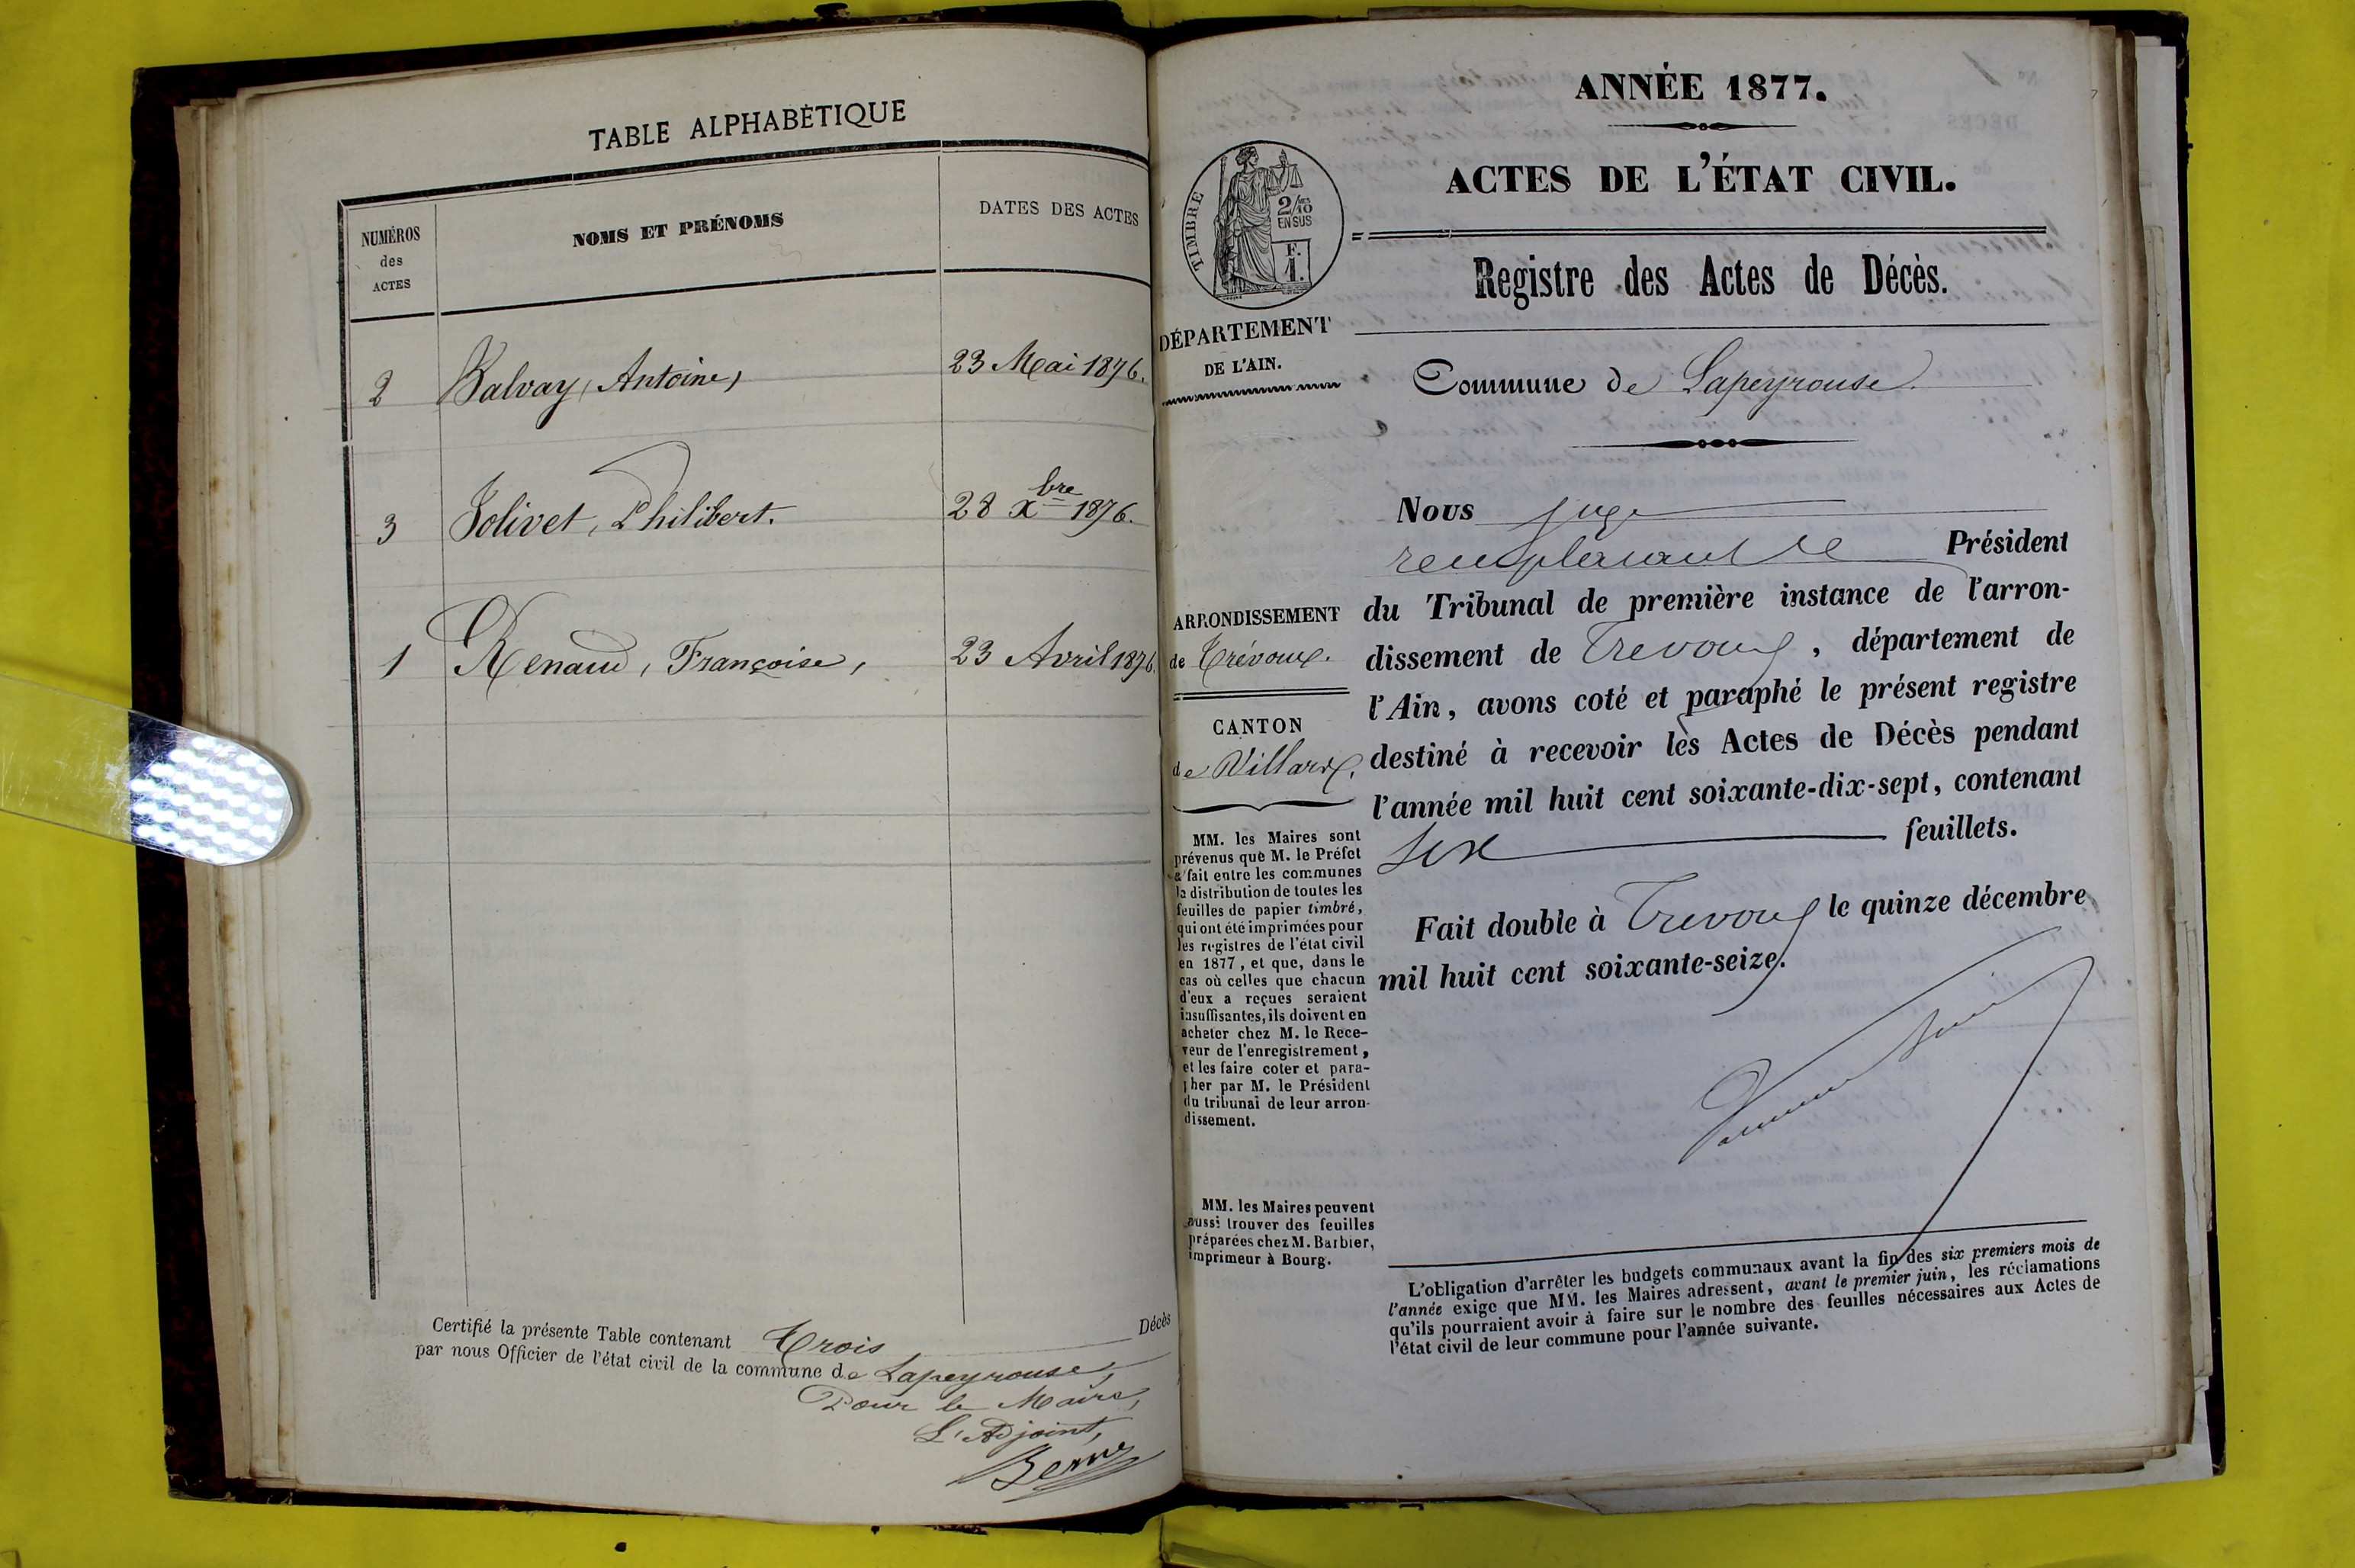 TABLE ALPHABÉTIQUE
NUMÉROS
des
ACTES
NOMS ET PRÉNOMS
DATES DES ACTES
2 Balvay, Antoine, 23 Mai 1876.
3 Jolivet, Philibert. 28 Xbre 1876.
1 Renaud, Françoise, 23 Avril 1876.
Certifié la présente Table contenant Trois Décès
par nous Officier de l'état civil de la commune de Lapeyrouse,
Pour le Maire,
L'Adjoint,
ANNÉE 1877.
ACTES DE L'ÉTAT CIVIL.
TIMBRE
2/10
EN SUS
F.
1.
Registre des Actes de Décès.
DÉPARTEMENT
DE L'AIN.
Commune de Lapeyrouse.
ARRONDISSEMENT
de Trévoux.
CANTON
de Villars.
MM. les Maires sont
prévenus que M. le Préfet
a fait entre les communes
la distribution de toutes les
feuilles de papier timbré,
qui ont été imprimées pour
les registres de l'état civil
en 1877, et que, dans le
cas où celles que chacun
d'eux a reçues seraient
insuffisantes, ils doivent en
acheter chez M. le Rece-
veur de l'enregistrement,
et les faire coter et para-
pher par M. le Président
du tribunal de leur arron-
dissement.
MM. les Maires peuvent
aussi trouver des feuilles
préparées chez M. Barbier,
imprimeur à Bourg.
Nous juge
remplaçant le Président
du Tribunal de première instance de l'arron-
dissement de Trevoux, département de
l'Ain, avons coté et paraphé le présent registre
destiné à recevoir les Actes de Décès pendant
l'année mil huit cent soixante-dix-sept, contenant
six feuillets.
Fait double à Trevoux le quinze décembre
mil huit cent soixante-seize.
L'obligation d'arrêter les budgets communaux avant la fin des six premiers mois de
l'année exige que MM. les Maires adressent, avant le premier juin, les réclamations
qu'ils pourraient avoir à faire sur le nombre des feuilles nécessaires aux Actes de
l'état civil de leur commune pour l'année suivante.